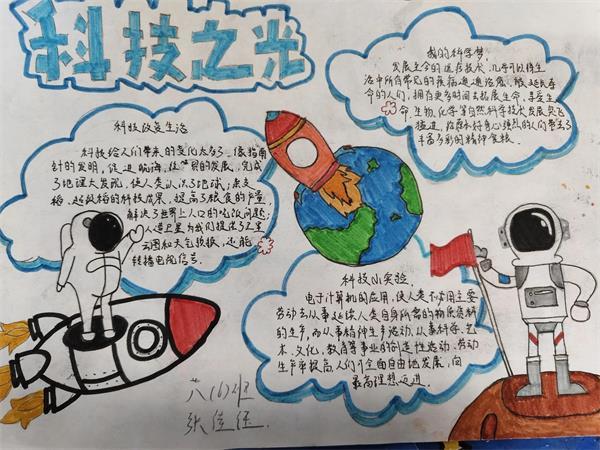 科技之光
我的科学梦
发展至今的医疗技术,几乎可以将生
活中所有常见的疾病通通治愈,能延长寿
命的人们,拥有更多时间去拓展生命,享受生
命,生物,化学等自然科学技术发展突飞
猛进,给
好奇心强烈的人们带来了
丰富多彩的精神食粮.
科技改变生活
科技给人们带来的变化太大了,像指南
针的发明,促进航海,
贸易的发展,完成
了地理大发现,使人类认识了地球;杂交
稻、超级稻的科技成果,提高了粮食的产量,
解决了世界上人口的吃饭问题;
人造卫星为我们提供了卫星
云图和天气预报,还能
转播电视信号.
科技小实验.
电子计算机的应用,使人类不常用主要
劳动去从事延续人类自身所需的物质资料
的生产,而从事精神生产活动,从事科学、艺
术、文化、教育等事业的创造性活动.劳动
生产率提高,人们可全面自由地发展,向
最高理想迈进.
六(6)班
张佳钰.